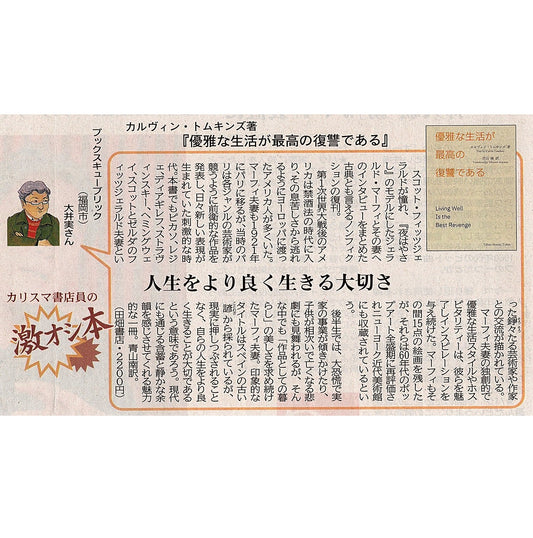 カルヴィン・トムキンズ著
『優雅な生活が最高の復讐である』
優雅な生活が
最高の
復讐である
Living Well
Is the
Best Revenge
ブックスキューブリック
（福岡市）
大井実さん
カリスマ書店員の
激オシ本
人生をより良く生きる大切さ
スコット・フィッツジェ
ラルドが憧れ、『夜はやさ
し』のモデルにしたジェラ
ルド・マーフィとその妻へ
のインタビューをまとめた
古典とも言えるノンフィク
ションの復刊。
第１次世界大戦後のアメ
リカは禁酒法の時代に入
り、その息苦しさから逃れ
るようにヨーロッパに渡っ
たアメリカ人が多くいた。
マーフィ夫妻も1921年
にパリに移るが、当時のパ
リは各ジャンルの芸術家が
競うように前衛的な作品を
発表し、日々新しい表現が
生まれていた刺激的な時
代。本書でもピカソ、レジ
ェ、ディアギレフ、ストラヴ
ィンスキー、ヘミングウェ
イ、スコットとゼルダのフ
ィッツジェラルド夫妻とい
った錚々たる芸術家や作家
との交流が描かれている。
マーフィ夫妻の独創的で
優雅な生活スタイルやホス
ピタリティーは、彼らを魅
了しインスピレーションを
与え続けた。マーフィもそ
の間15点の絵画を残した
が、それらは60年代のポッ
プアート全盛期に再評価さ
れニューヨーク近代美術館
にも収蔵されているとい
う。
後半生では、大恐慌で実
家の事業が傾きかけたり、
子供が相次いで亡くなる悲
劇にも見舞われるが、そん
な中でも「作品としての暮
らし」の美しさを求め続け
たマーフィ夫妻。印象的な
タイトルはスペインの古い
諺から採られているが、
現実に押しつぶされること
なく、自らの人生をより良
く生きることが大切である
という意味であろう。現代
にも通じる含蓄と静かな余
韻を感じさせてくれる魅力
的な一冊。青山南訳。
（田畑書店・2200円）